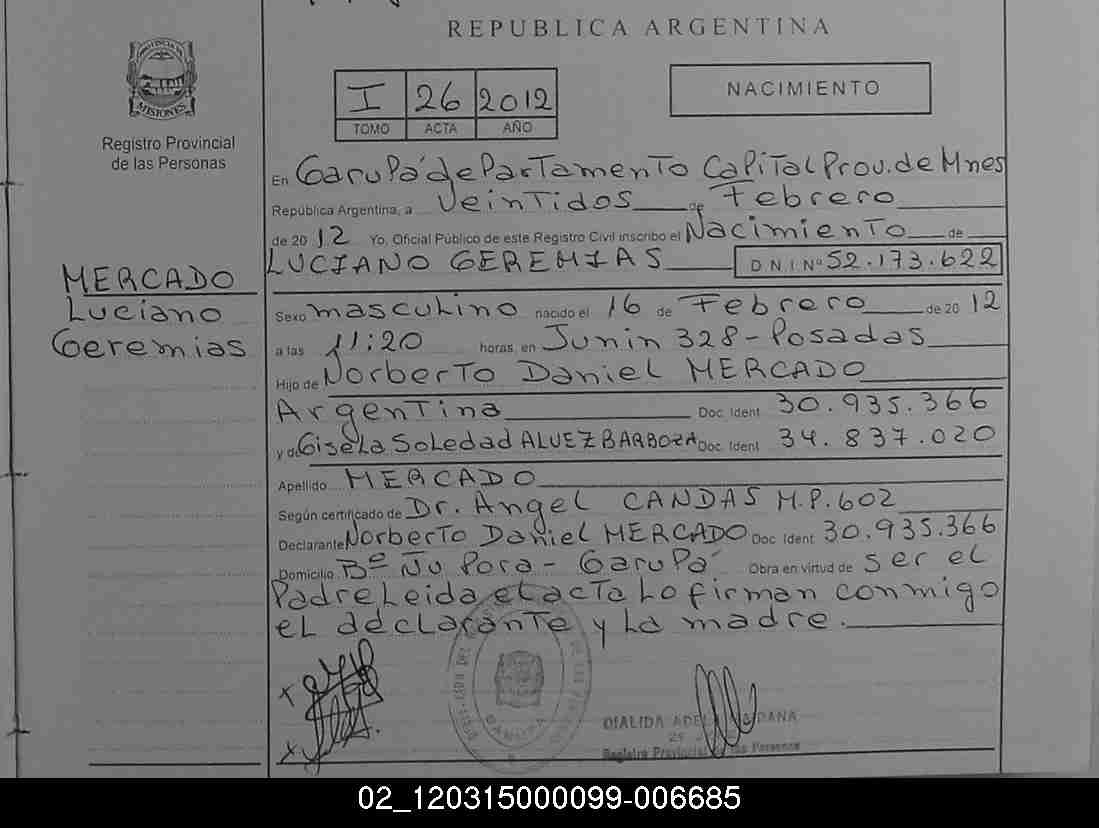 REPUBLICA ARGENTINA
PROVINCIA DE
MISIONES
Registro Provincial
de las Personas
I 26 2012
TOMO ACTA AÑO
NACIMIENTO
En Garupá departamento Capital Prov. de Mnes
República Argentina, a veintidos de Febrero
de 2012 Yo, Oficial Público de este Registro Civil inscribo el Nacimiento de
LUCIANO GEREMIAS D.N.I. Nº 52.173.622
MERCADO
Luciano
Geremias
Sexo masculino nacido el 16 de Febrero de 2012
a las 11:20 horas, en Junin 328-Posadas
Hijo de Norberto Daniel MERCADO
Argentina Doc. Ident. 30.935.366
y de Gisela Soledad ALVEZ BARBOZA Doc. Ident. 34.837.020
Apellido MERCADO
Según certificado de Dr. Angel CANDAS M.P. 602
Declarante Norberto Daniel MERCADO Doc. Ident. 30.935.366
Domicilio Bº Ñu Pora - Garupá Obra en virtud de ser el
Padre Leida el acta lo firman conmigo
el declarante y la madre.
GARUPA
DIALIDA
Registro Provincial de las Personas
02_120315000099-006685